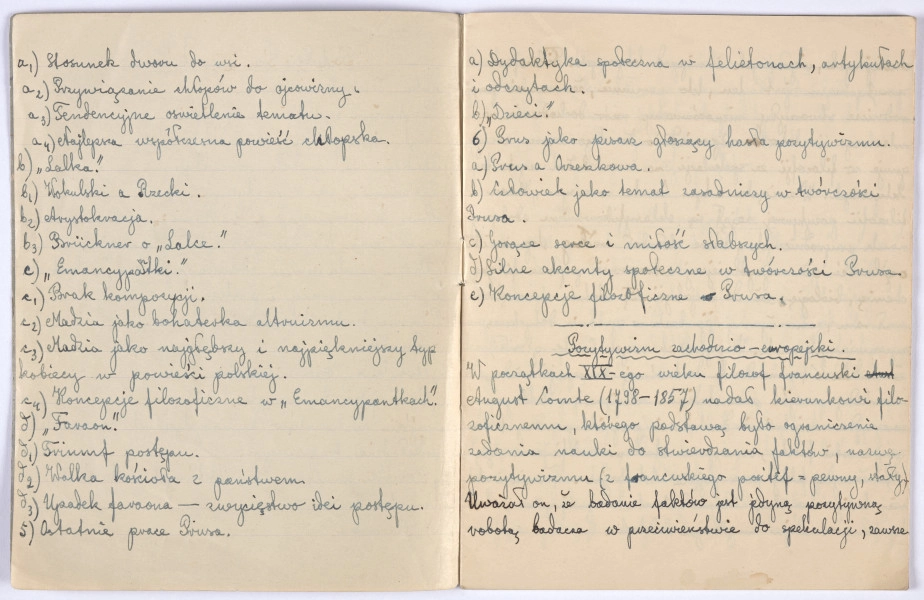 a₁) Stosunek dworu do wsi.
a₂) Przywiązanie chłopów do ojcowizny.
a₃) Tendencyjne oswietlenie tematu.
a₄) Najlepsza współczesna powieść chłopska.
b) „Lalka."
b₁) Wokulski a Rzecki.
b₂) Arystokracja.
b₃) Brückner o „Lalce."
c) „Emancypantki."
c₁) Brak kompozycji.
c₂) Madzia jako bohaterka altruizmu.
c₃) Madzia jako najgłębszy i najpiękniejszy typ
kobiecy w powieści polskiej.
c₄) Koncepcje filozoficzne w „Emancypantkach".
d) „Faraon."
d₁) Triumf postępu.
d₂) Walka kościoła z państwem.
d₃) Upadek faraona — zwycięstwo idei postępu.
5) Ostatnie prace Prusa.
a) Dydaktyka społeczna w felietonach, artykułach
i odczytach.
b) „Dzieci."
6) Prus jako pisarz głoszący hasła pozytywizmu.
a) Prus a Orzeszkowa.
b) Człowiek jako temat zasadniczy w twórczości
Prusa.
c) Gorące serce i miłość słabszych.
d) Silne akcenty społeczne w twórczości Prusa.
e) Koncepcje filozoficzne Prusa.
Pozytywizm zachodnio-europejski.
W początkach XIX-ego wieku filozof francuski
August Comte (1798-1857) nadał kierunkowi filo-
zoficznemu, którego podstawą było ograniczenie
zadania nauki do stwierdzania faktów, nazwę
pozytywizmu (z francuskiego positif = pewny, stały).
Uważał on, że badanie faktów jest jedyną pozytywną
robotą badacza w przeciwieństwie do spekulacji, zawsze